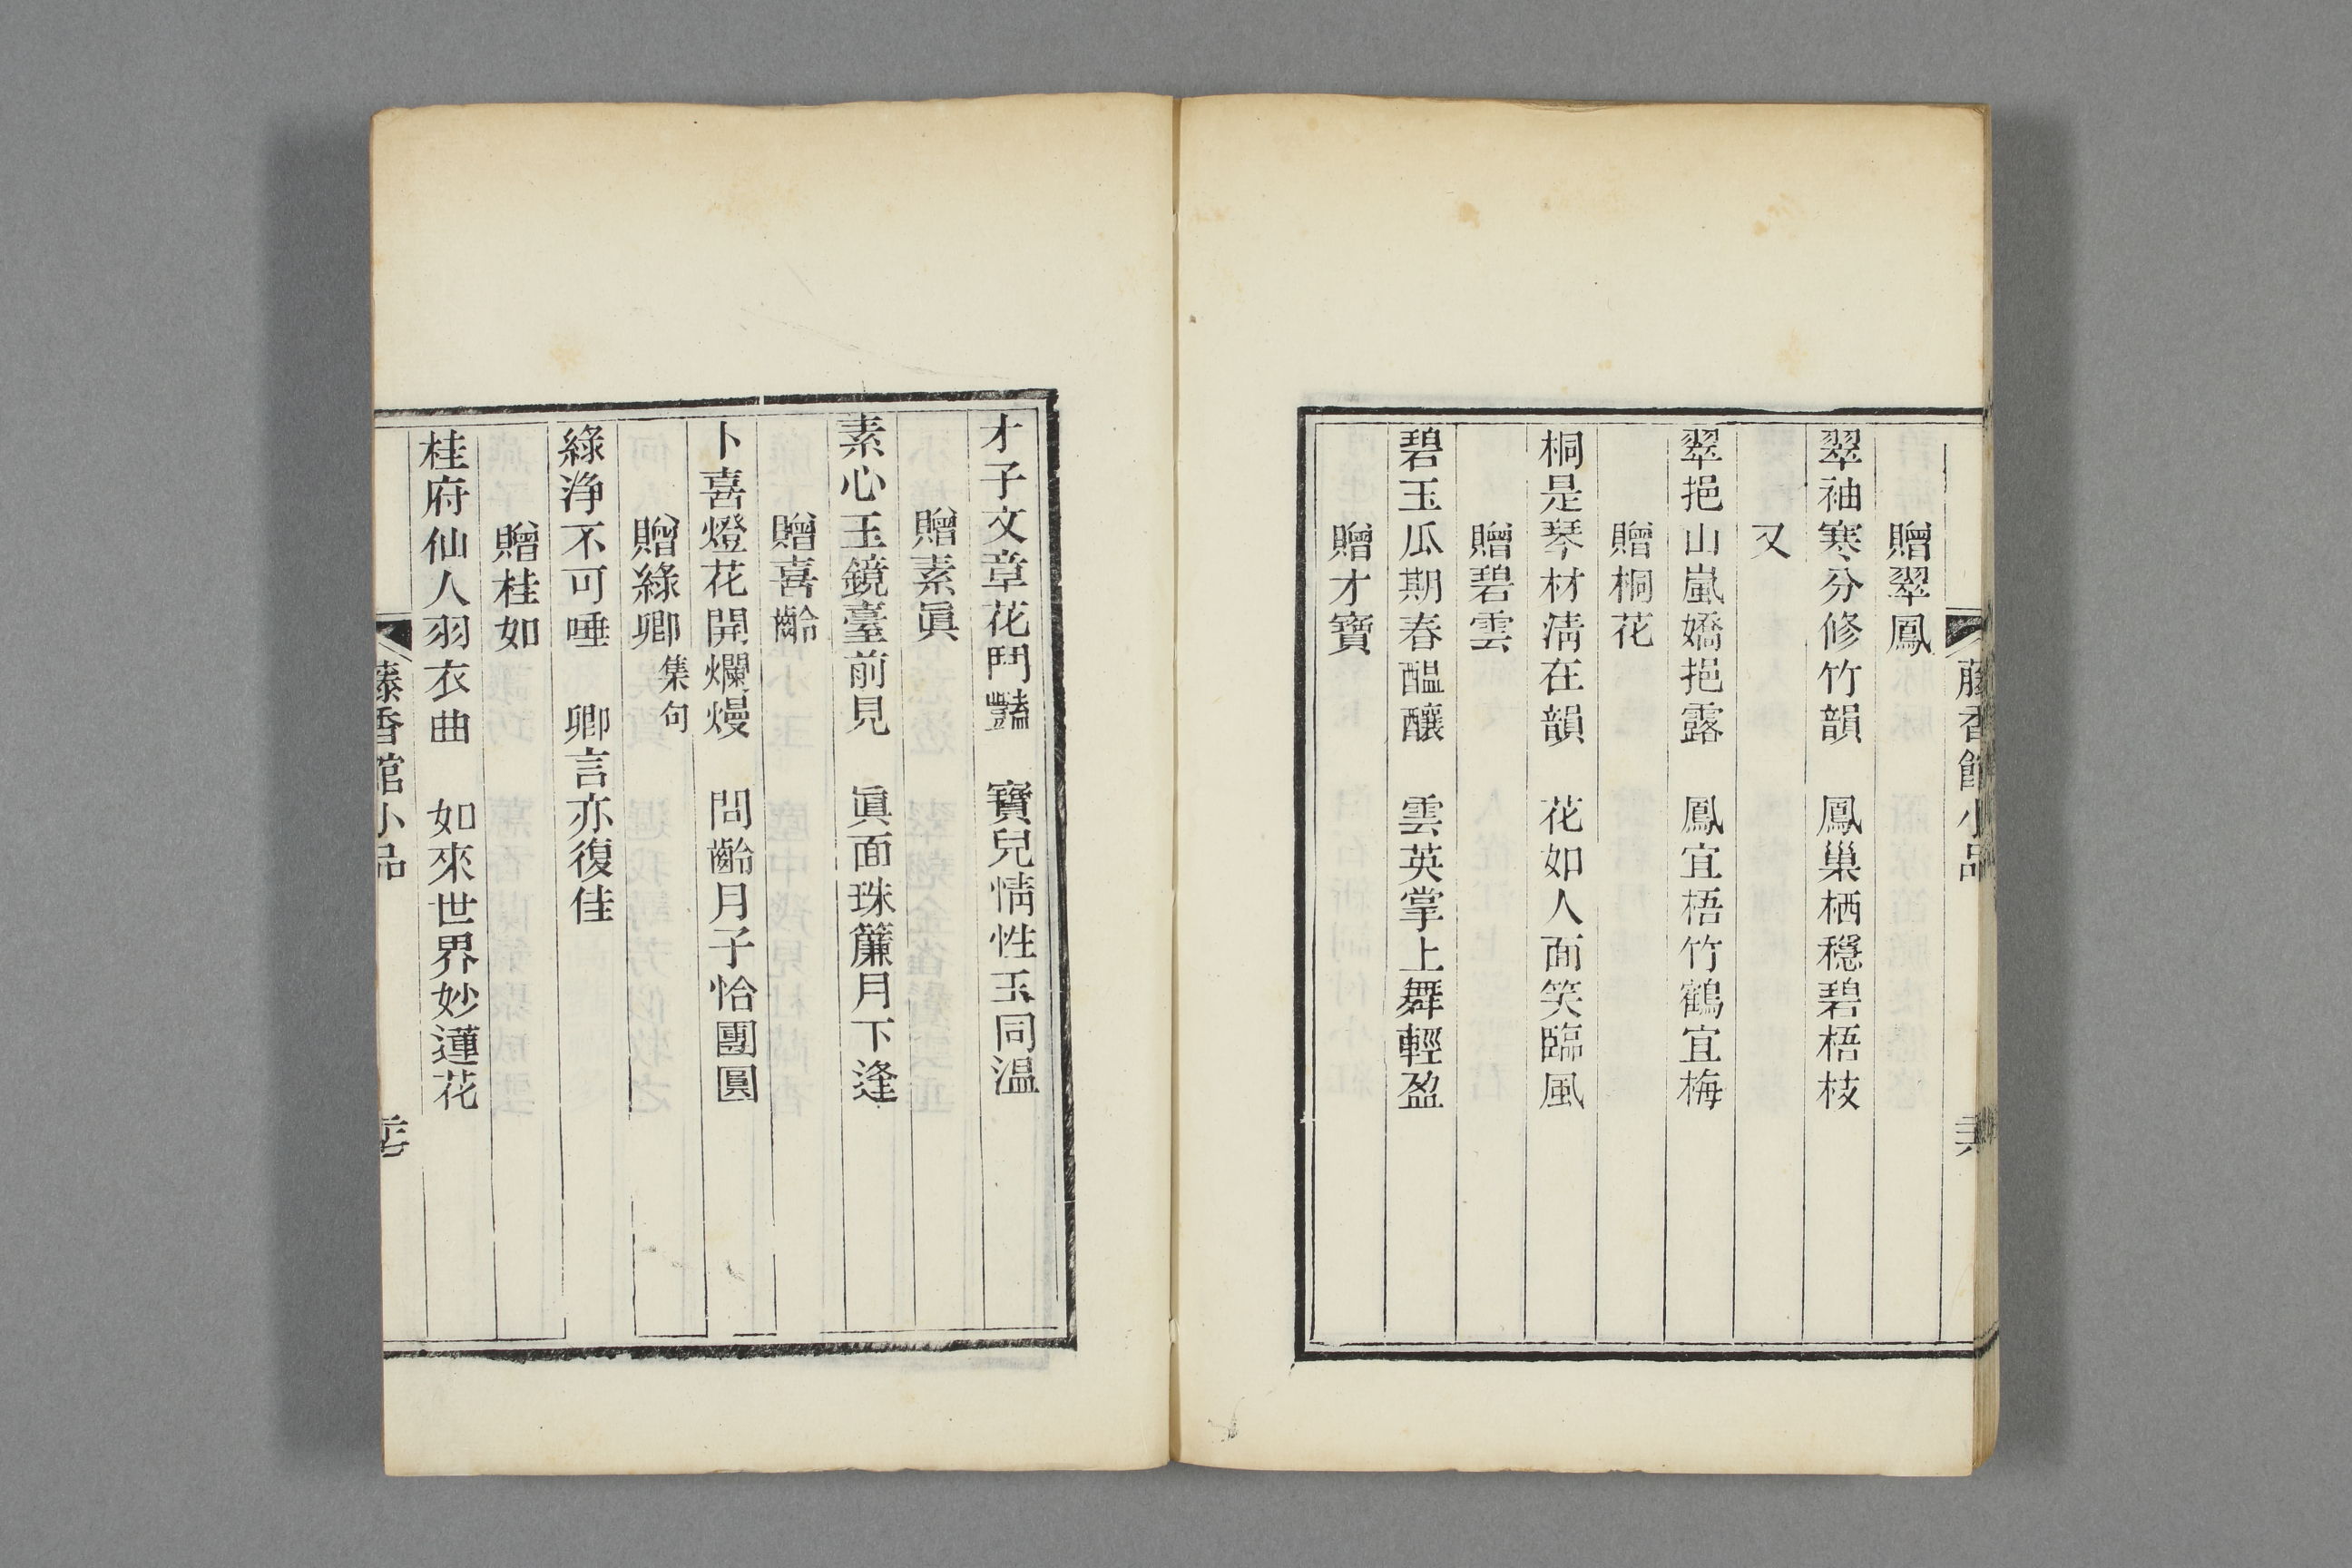 藤香館小品
贈翠鳳
翠袖寒分修竹韻　鳳巢栖穩碧梧枝
又
翠挹山嵐嬌挹露　鳳宜梧竹鶴宜梅
贈桐花
桐是琴材淸在韻　花如人面笑臨風
贈碧雲
碧玉瓜期春醖釀　雲英掌上舞輕盈
贈才寶
才子文章花鬥豔　寶兒情性玉同温
贈素眞
素心玉鏡臺前見　眞面珠簾月下逢
贈喜齡
卜喜燈花開爛熳　問齡月子恰團圓
贈綠卿集句
綠淨不可唾　卿言亦復佳
贈桂如
桂府仙人羽衣曲　如來世界妙蓮花
藤香館小品